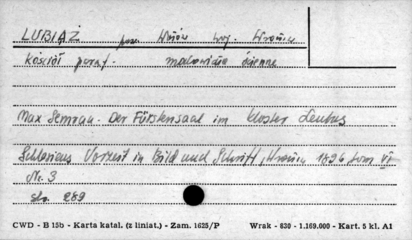 LUBIĄŻ pow. Wołów woj. Wrocław
Kościół paraf. malowidła ścienne
Max Semrau. Der Fürstensaal im Kloster Leubus
Schlesiens Vorzeit in Bild und Schrift, Wrocław 1896 tom VI
Nr. 3
str. 289
CWD - B 15b - Karta katal. (z liniat.) - Zam. 1625/P Wrak - 830 - 1.169.000 - Kart. 5 kl. A1